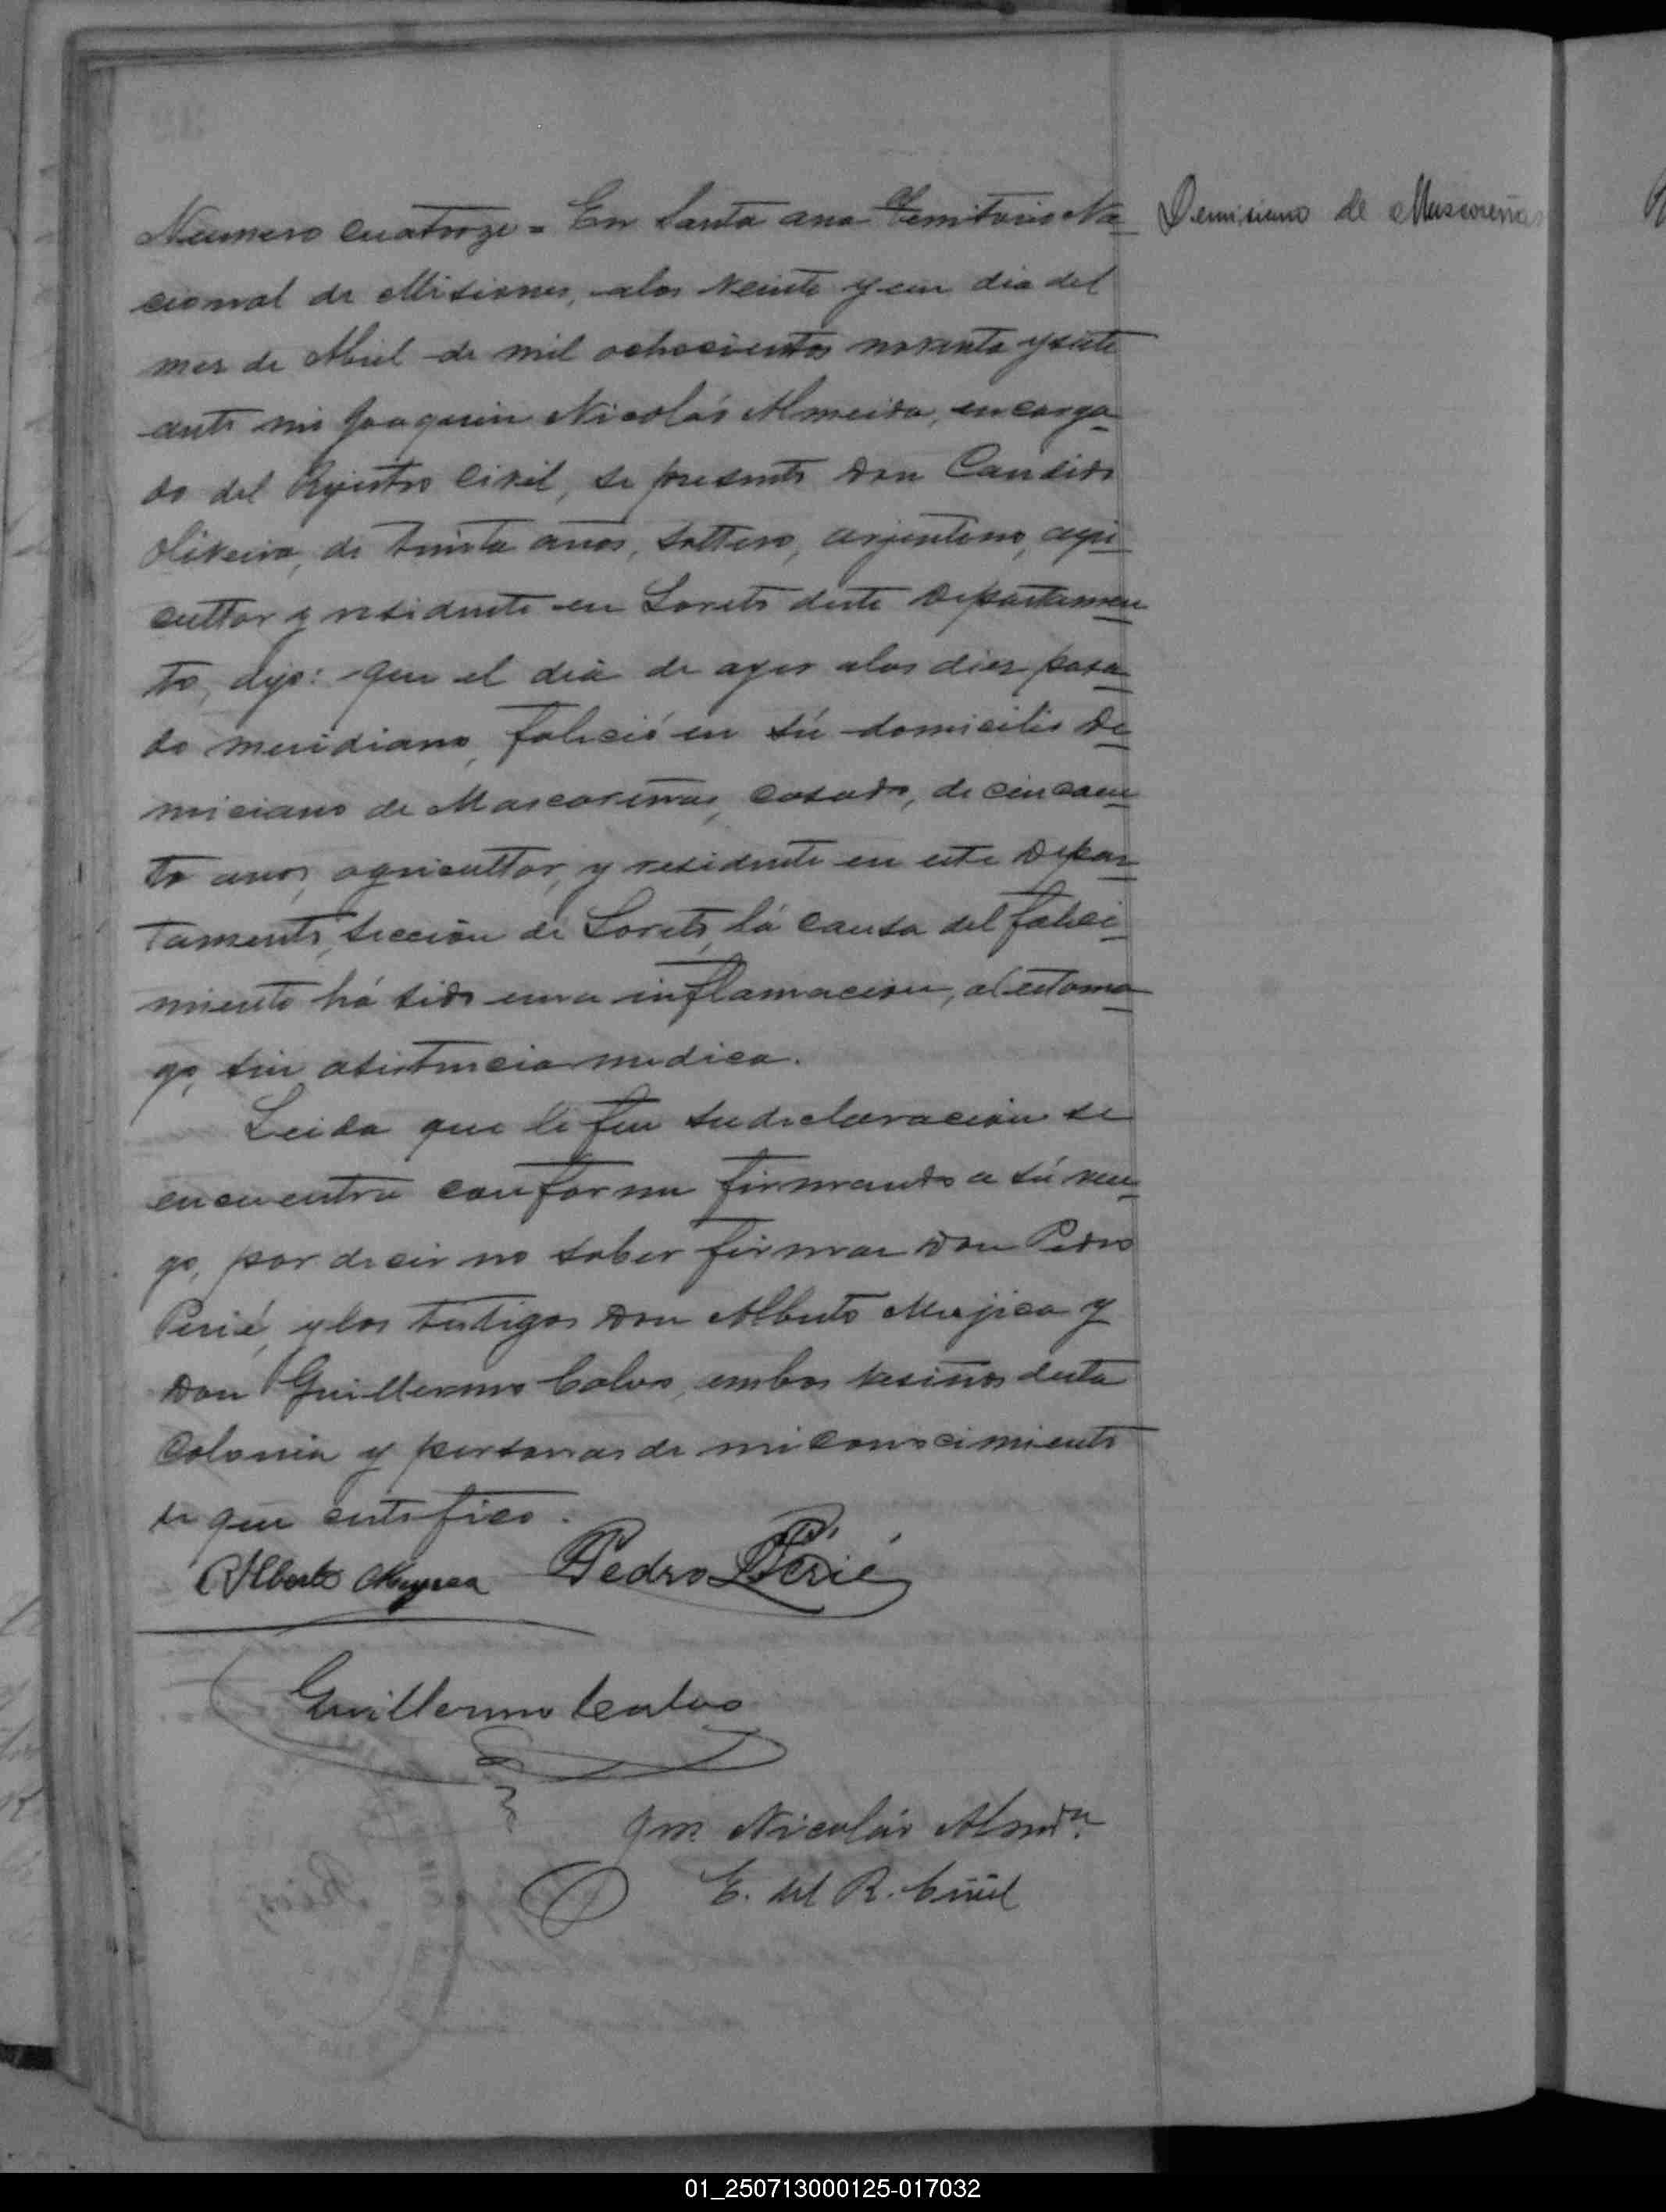 Numero cuatorze = En Santa ana Territorio Na
Demisiano de Mascoreñas
cional de Misiones, alos veinte y un dia del
mes de Abril de mil ochocientos noventa y siete
ante mi Joaquin Nicolás Almeida, encarga
do del Rejistro Civil, se presento don Candido
Oliveira, de treinta años, soltero, arjentino, agri
cultor y residente en Loreto deste Departamen
to, dijo: que el dia de ayer alas diez pasa
do meridiano, falició en sú domicilio De
miciano de Mascoreñas, casado, de cincuen
ta anos, agricultor, y residente en este Depar
tamento, seccion de Loreto, lá causa del falici
miento há sido una inflamacion, al estoma
go, sin asistencia medica.
Leida que le fue su declaracion se
encuentra conforme firmando a sú rue
go, por decir no saber firmar don Pedro
Perié, y los testigos don Alberto Mujica y
don Guillermo Calvo, ambos vesinos desta
Colonia y personas de mi conocimiento
de que certifico.
Alberto Mujica Pedro Perié
Guillermo Calvo
Jn. Nicolás Almda.
E. del R. Civil
01_250713000125-017032